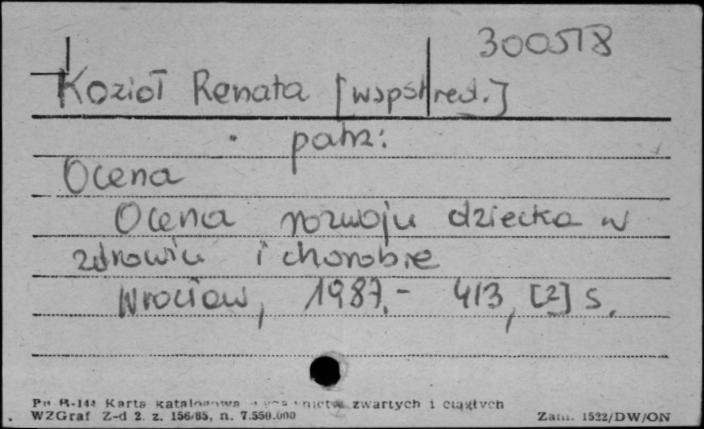 300518
Kozioł Renata [współred.]
patrz:
Ocena
Ocena rozwoju dziecka w
zdrowiu i chorobie
Wrocław, 1987.- 413, [2] s.
Pu-B-144 Karta katalogowa zwartych i ciągłych
WZGraf Z-d 2. z. 156/85, n. 7.550.000
Zam. 1522/DW/ON